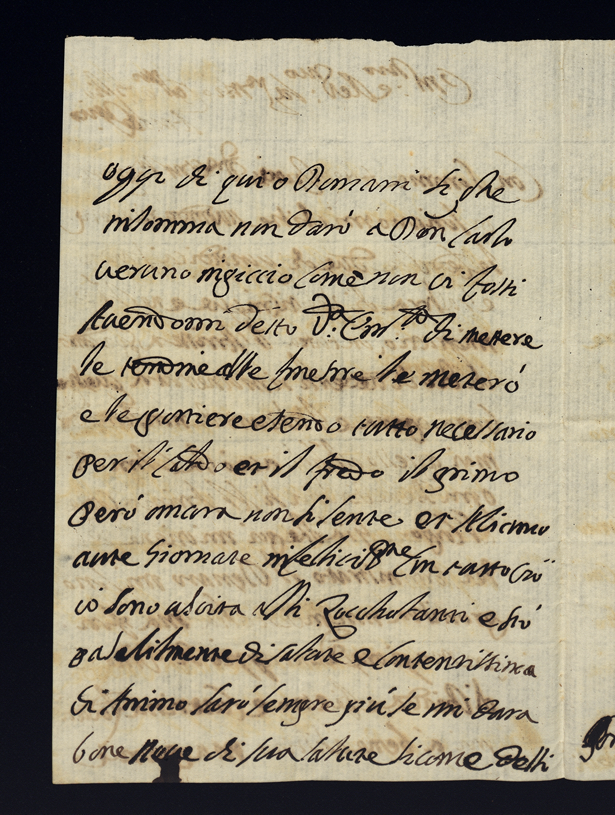 oggi di qui o Romani si che
insomma non darò a Don Carlo
veruno inpiccio come non vi fossi
avendomi detto V.ª Em.ª di metere
le tendine alle finestre le meterò
e le portiere esendo tutto necessario
per il caldo et il fredo il primo
però ancora non si sente et abiamo
aute giornate infelicis.me con tutto ciò
io sono uscita alli Zocholanti e stó
pasabilmente di salute e contentissima
di Animo sarò sempre più se mi dara
bone nove di sua salute sicome delli